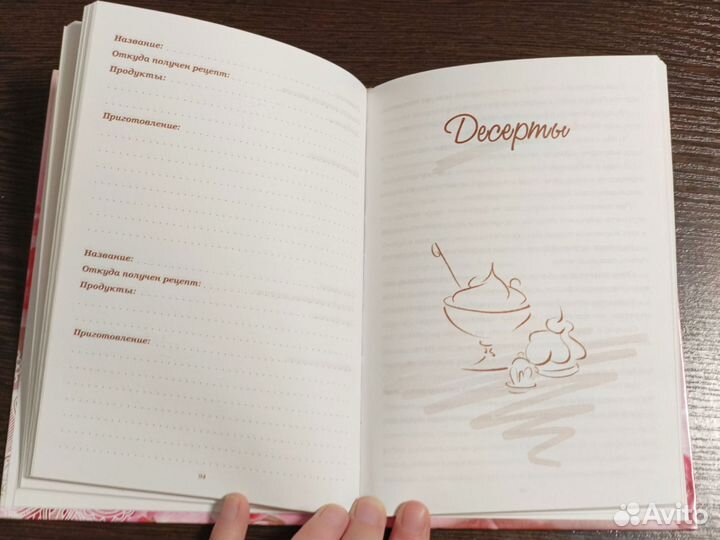 Название:
Откуда получен рецепт:
Продукты:
Приготовление:
Название:
Откуда получен рецепт:
Продукты:
Приготовление:
94
Десерты
Avito